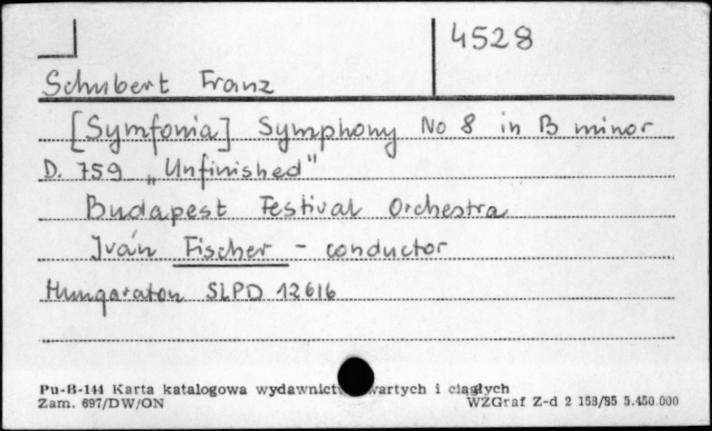 4528
Schubert Franz
[Symfonia] Symphony No 8 in B minor
D. 759 „Unfinished"
Budapest Festival Orchestra
Iván Fischer - conductor
Hungaraton SLPD 12616
Pu-B-144 Karta katalogowa wydawnict wartych i ciągłych
Zam. 697/DW/ON WZGraf Z-d 2 153/85 5.450.000